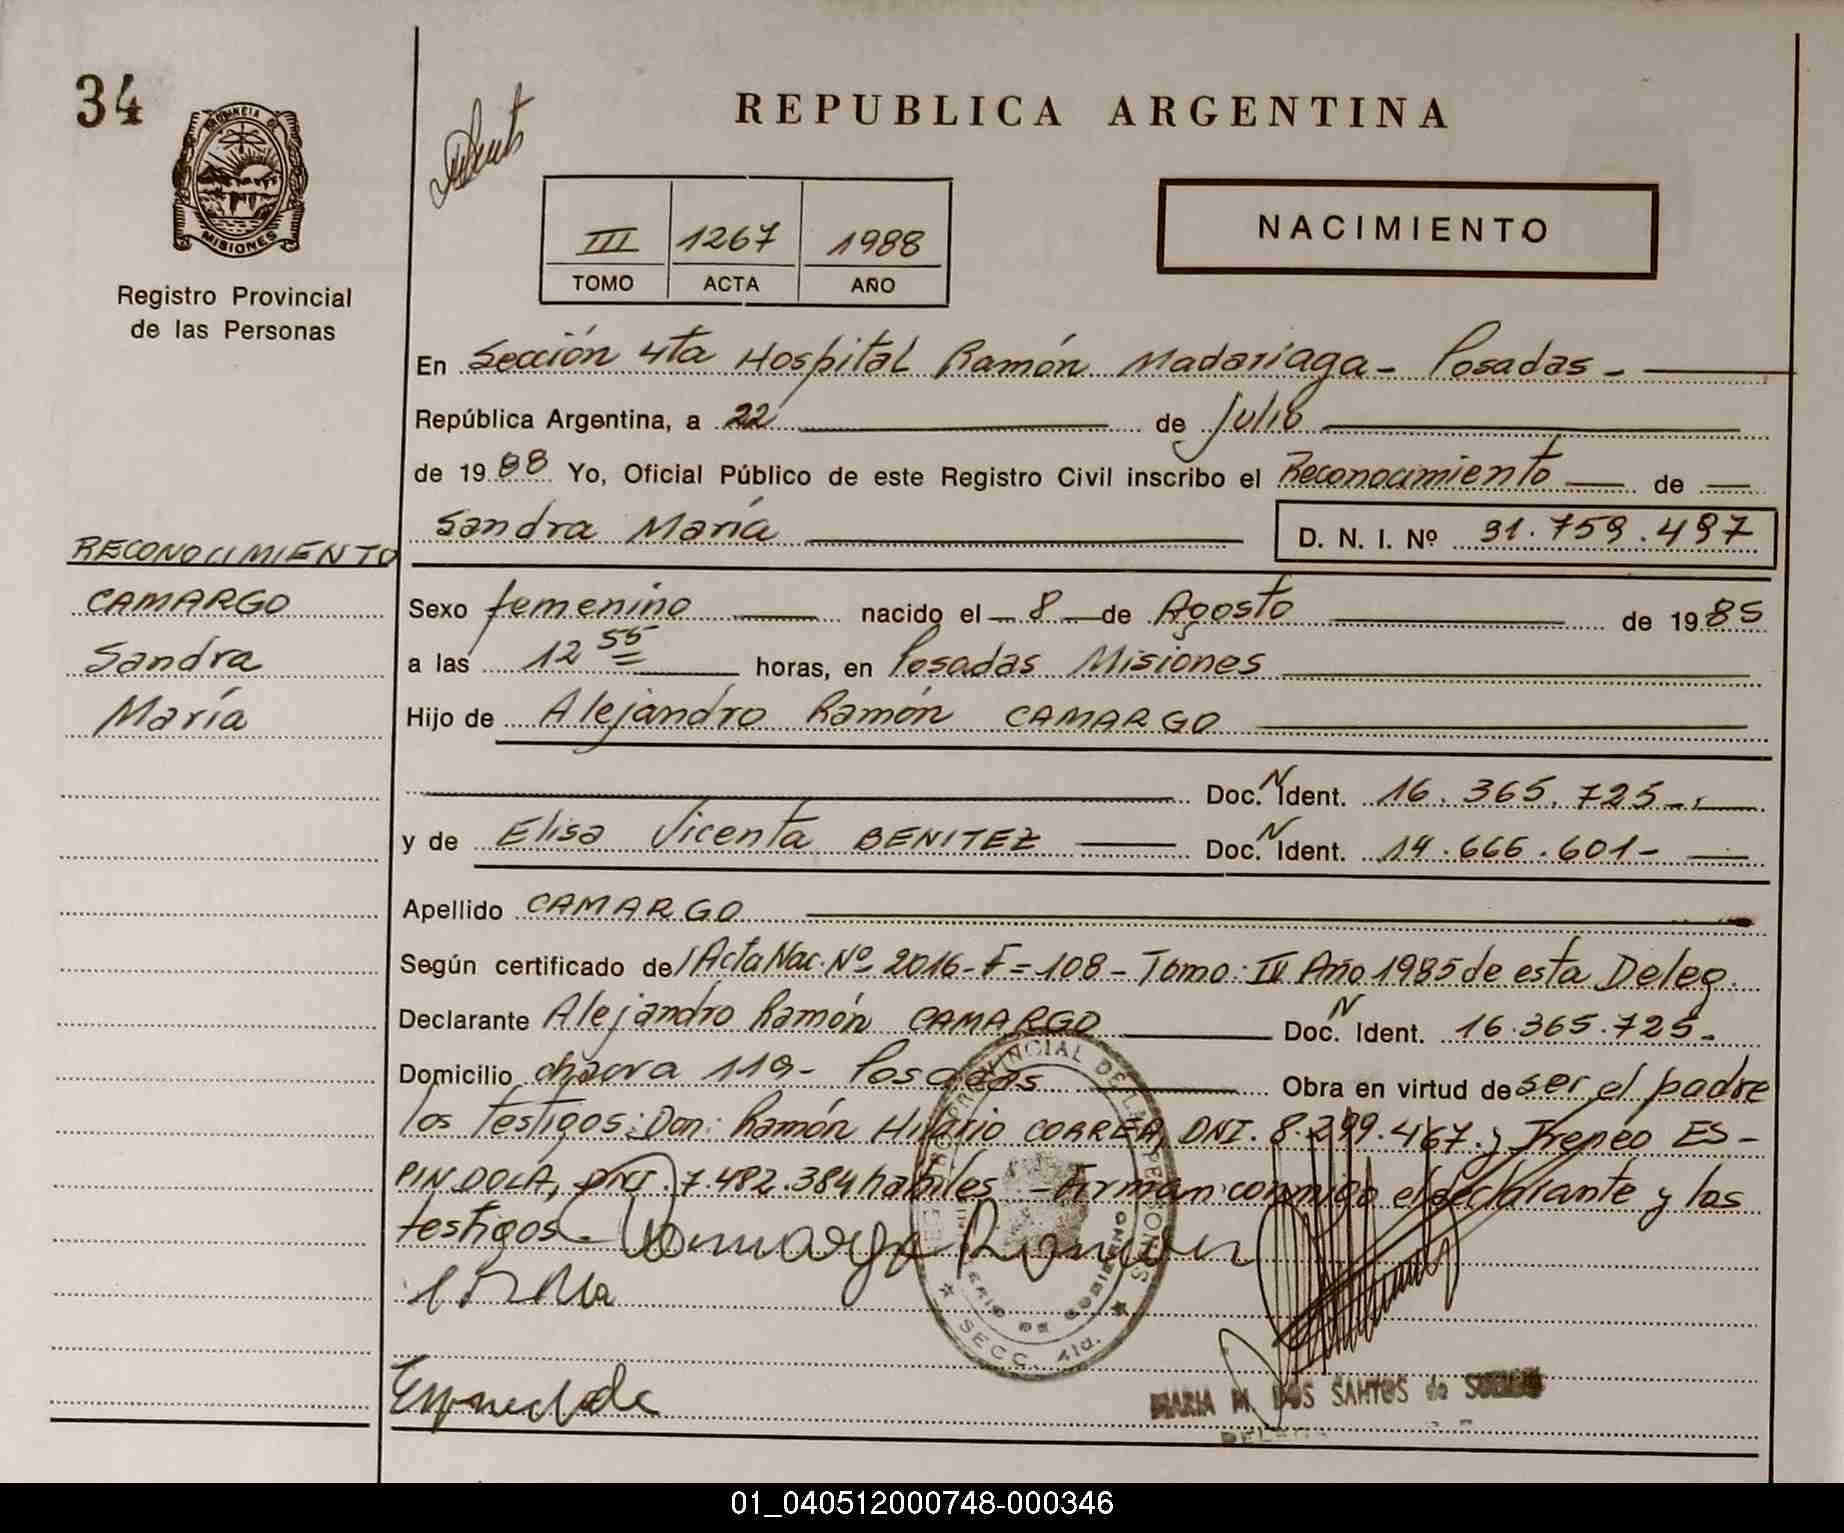 34
PROVINCIA DE
MISIONES
Registro Provincial
de las Personas
REPUBLICA ARGENTINA
III 1267 1988
TOMO ACTA AÑO
NACIMIENTO
En Sección 4ta Hospital Ramón Madariaga - Posadas -
República Argentina, a 22 de Julio
de 1988 Yo, Oficial Público de este Registro Civil inscribo el Reconocimiento de
Sandra María D. N. I. Nº 31.759.497
RECONOCIMIENTO
CAMARGO
Sandra
María
Sexo femenino nacido el 8 de Agosto de 1985
a las 12 55 horas, en Posadas Misiones
Hijo de Alejandro Ramón CAMARGO
Doc. N Ident. 16.365.725-
y de Elisa Vicenta BENITEZ Doc. N Ident. 14.666.601-
Apellido CAMARGO
Según certificado del Acta Nac. Nº 2016-F=108- Tomo: IV Año 1985 de esta Deleg.
Declarante Alejandro Ramón CAMARGO Doc. N Ident. 16.365.725-
Domicilio chacra 119- Posadas Obra en virtud de ser el padre
los testigos: Don: Ramón Hilario CORREA, DNI. 8.299.467. y Ireneo ES-
PINDOLA, DNI. 7.482.384 hábiles - Firman conmigo el declarante y los
testigos -
PROVINCIAL DE LAS PERSONAS
DE GOBIERNO
SECC. 4ta.
MARIA M. DOS SANTOS de
01_040512000748-000346